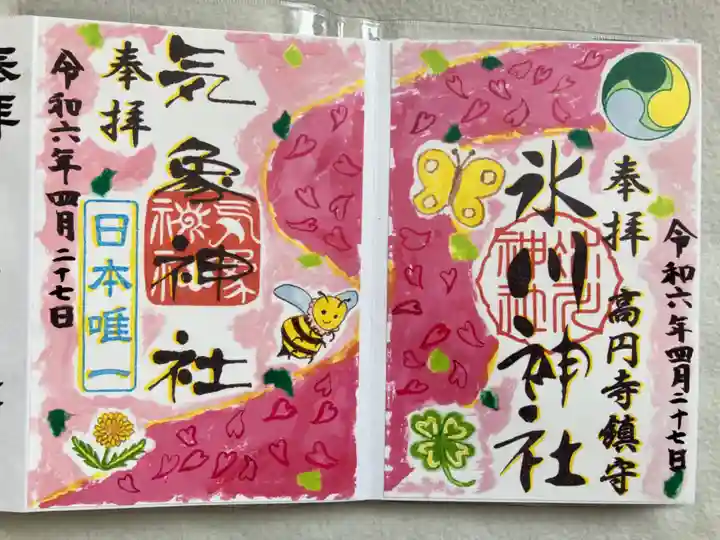 奉拝
高円寺鎮守
氷川神社
令和六年四月二十七日
奉拝
気象神社
日本唯一
令和六年四月二十七日
奉拝